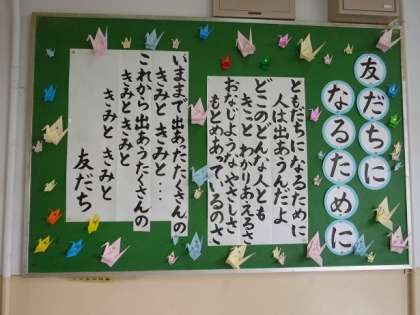 友だちに
なるために
ともだちに なるために
人は出あうんだよ
どこのどんな人とも
きっと わかりあえるさ
おなじような やさしさ
もとめあっているのさ
いままで 出あったたくさんの
きみと きみと・・
これから 出あうたくさんの
きみと きみと
きみと きみと
友だち